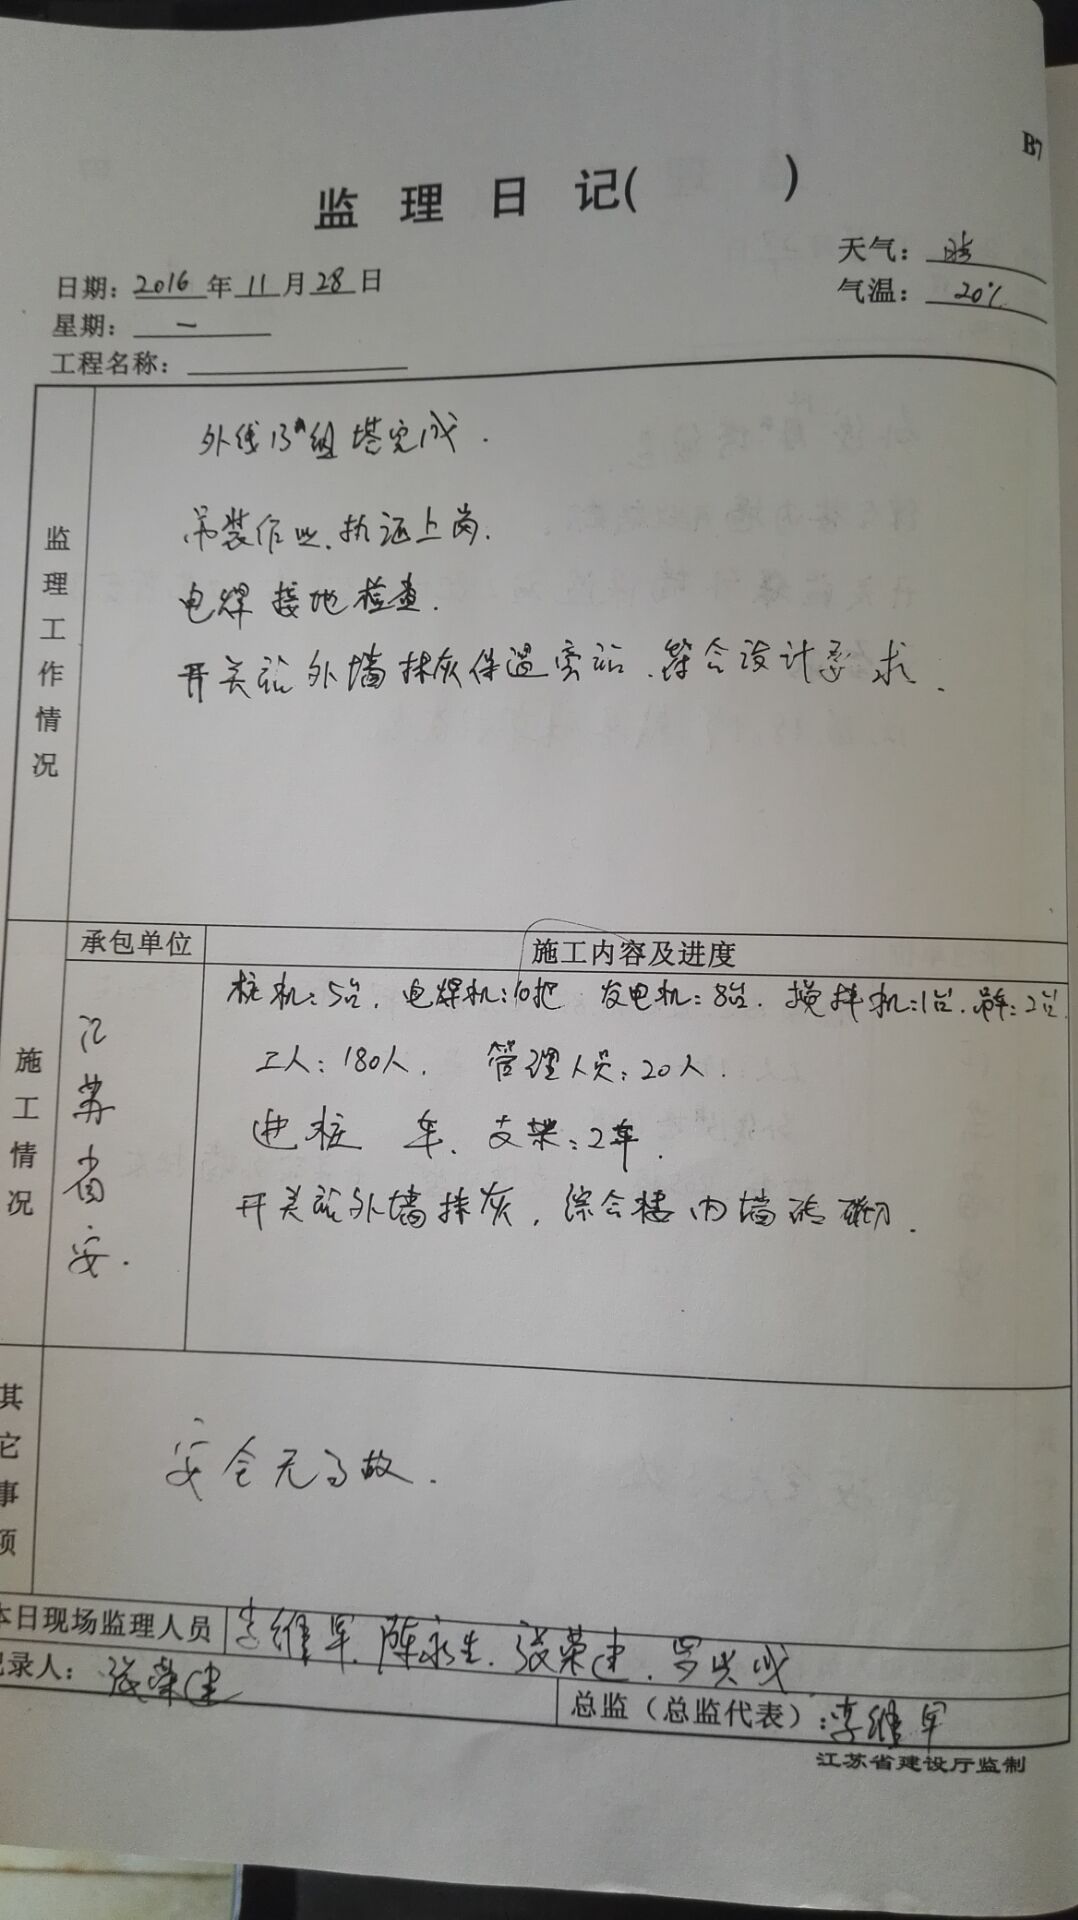 B7
监 理 日 记(          )
天气: 晴
日期: 2016 年 11 月 28 日
气温: 20℃
星期: 一
工程名称:
监理工作情况
外线13#组塔完成.
吊装作业、执证上岗.
电焊接地检查.
开关站外墙抹灰保温旁站、符合设计要求.
施工情况
承包单位
施工内容及进度
江苏省安.
桩机:5台. 电焊机:10把 发电机:8台. 搅拌机:1台. 吊车:2台.
工人:180人. 管理人员:20人.
进桩 车、支架:2车.
开关站外墙抹灰, 综合楼内墙砖砌.
其它事项
安全无事故.
本日现场监理人员 李维军、陈永生、张荣建、罗兴成
记录人: 张荣建
总监(总监代表): 李维军
江苏省建设厅监制